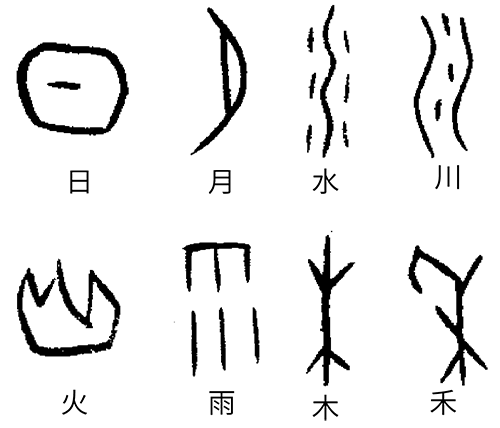 日 月 水 川
火 雨 木 禾